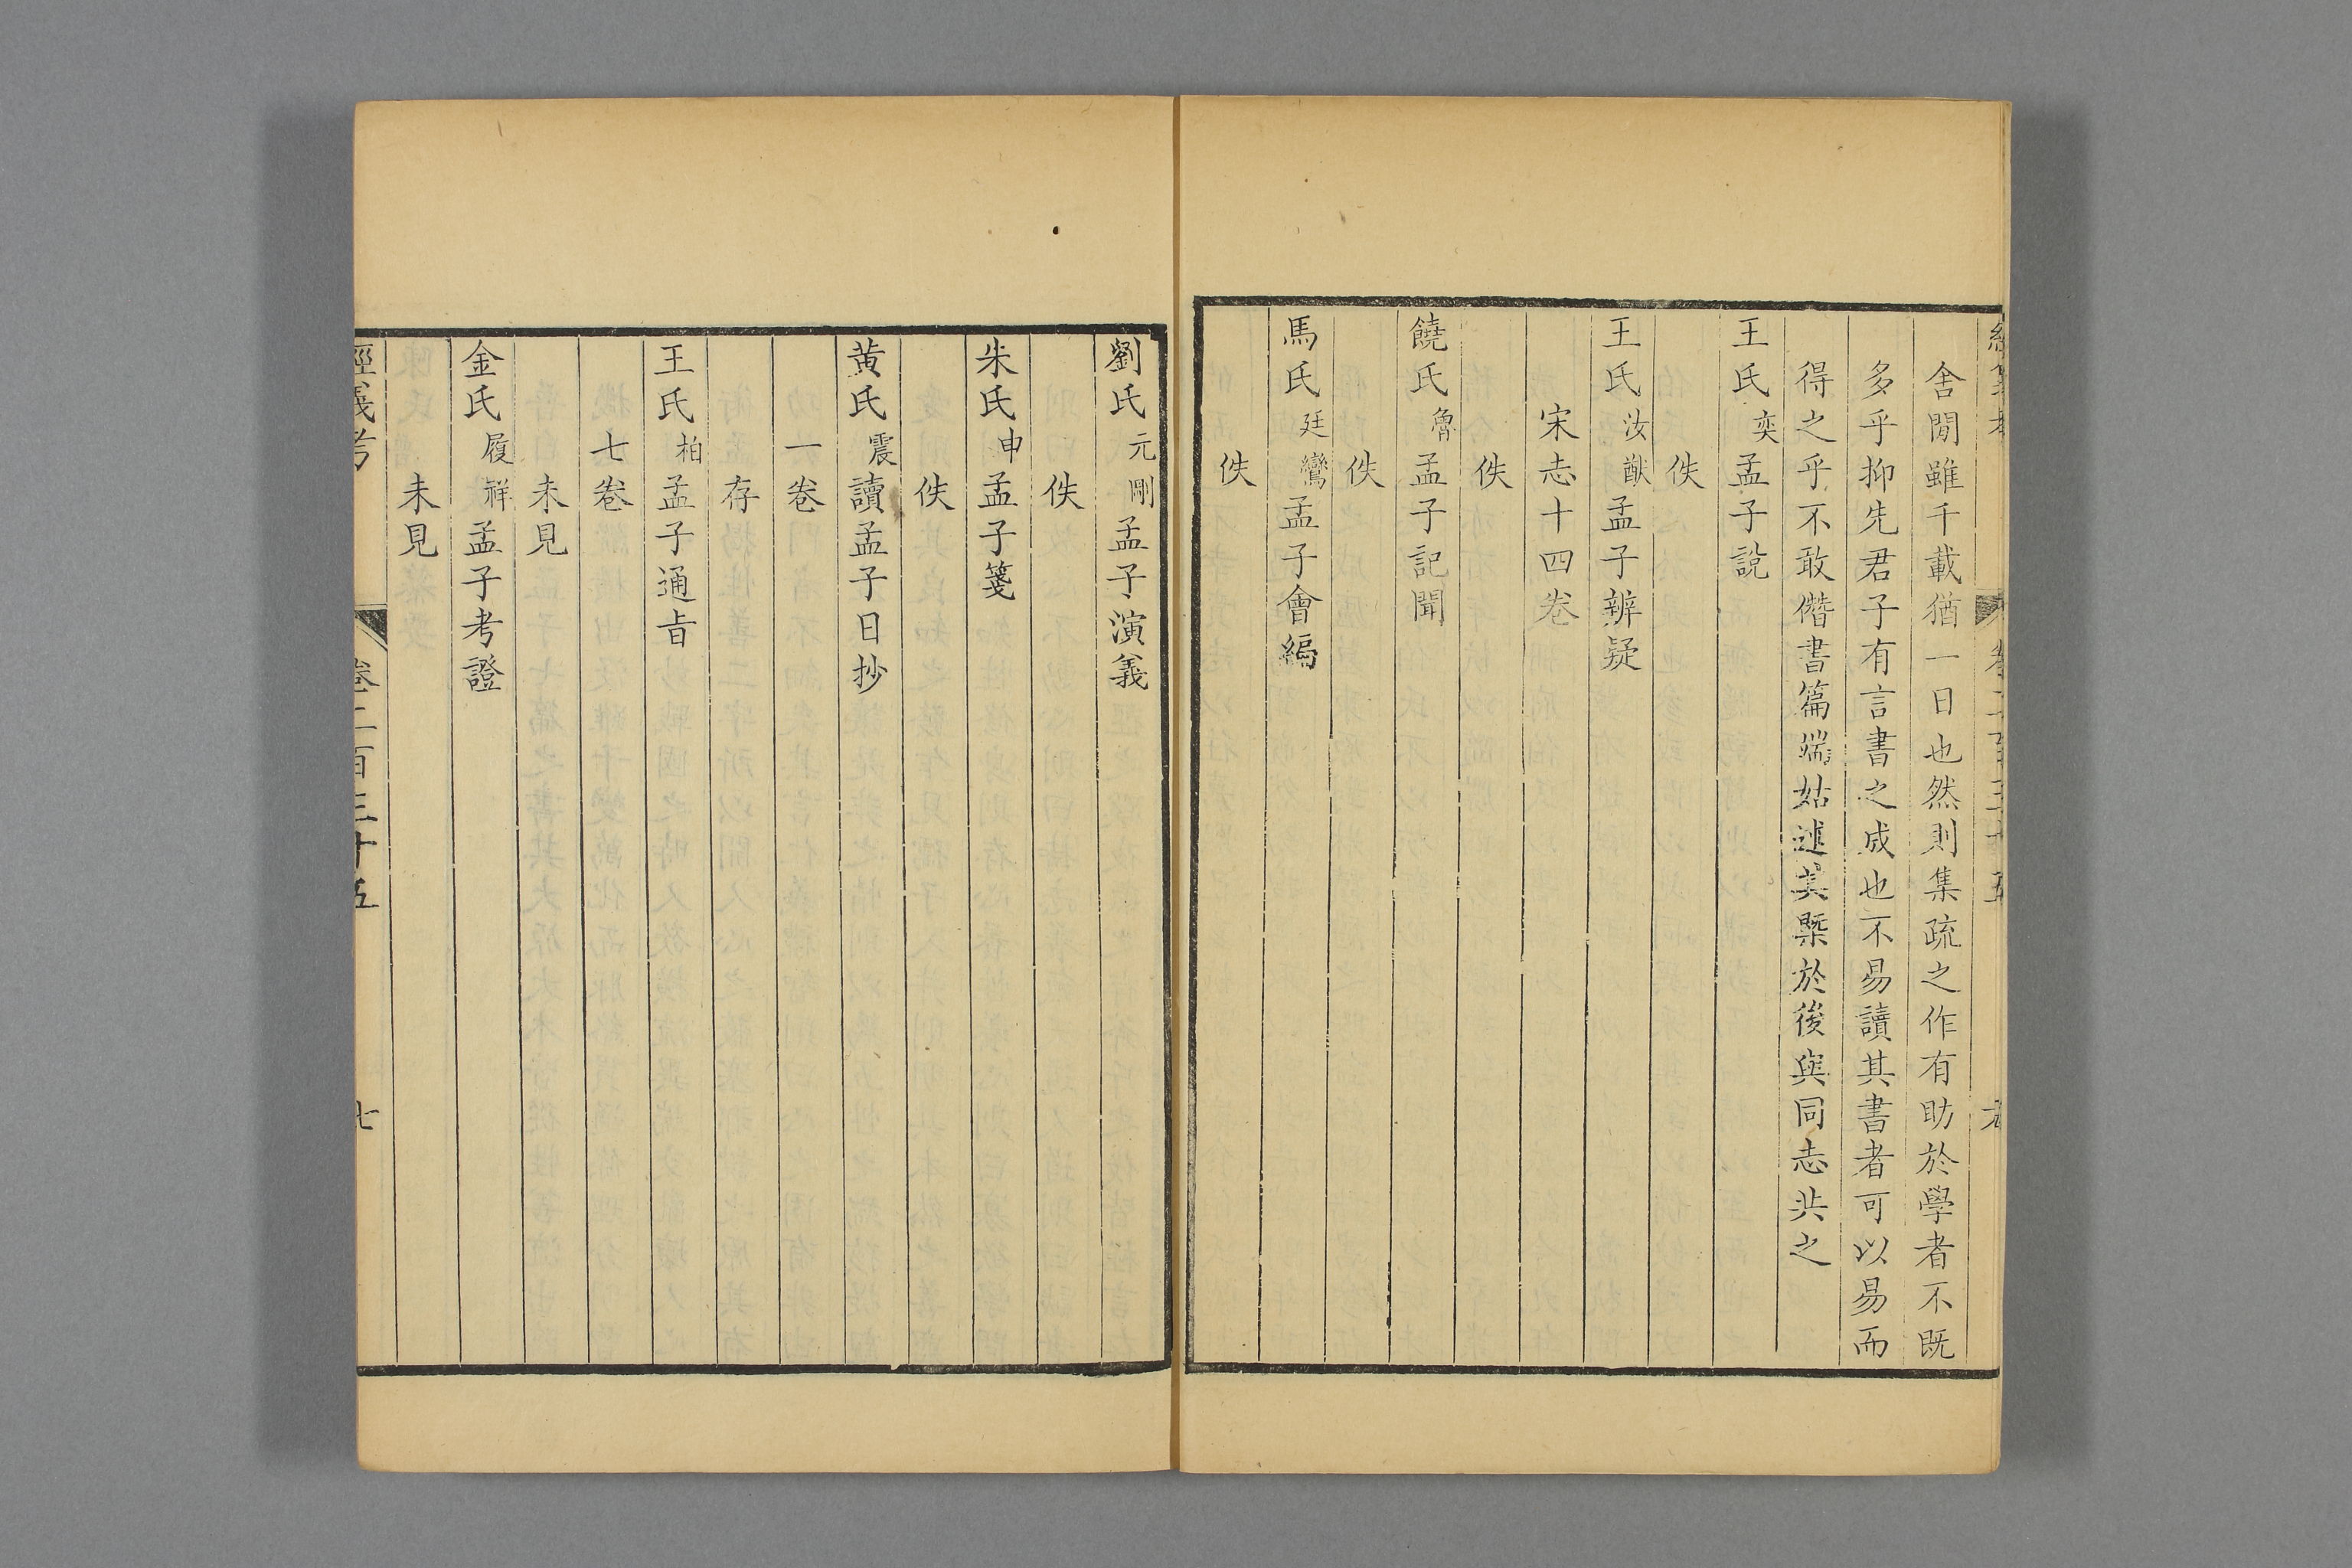 舍閒雖千載猶一日也然則集疏之作有助於學者不既
多乎抑先君子有言書之成也不易讀其書者可以易而
得之乎不敢僭書篇端姑述其槩於後與同志共之
王氏奕孟子說
佚
王氏汝猷孟子辨疑
宋志十四卷
佚
饒氏魯孟子記聞
佚
馬氏廷鸞孟子會編
佚
劉氏元剛孟子演義
佚
朱氏申孟子箋
佚
黃氏震讀孟子日抄
一卷
存
王氏柏孟子通旨
七卷
未見
金氏履祥孟子考證
未見
經義考 卷二百三十五 七